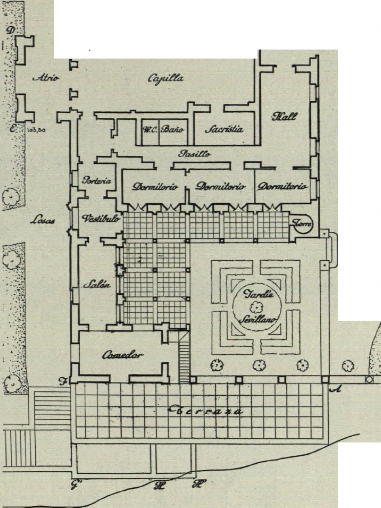 D
Atrio
Capilla
Hall
C
103,50
W.C. Baño
Sacristia
Pasillo
Porteria
Dormitorio
Dormitorio
Dormitorio
Losas
Vestibulo
Torre
Salón
Jardin
Sevillano
Comedor
F
A
Terraza
G
H
H'